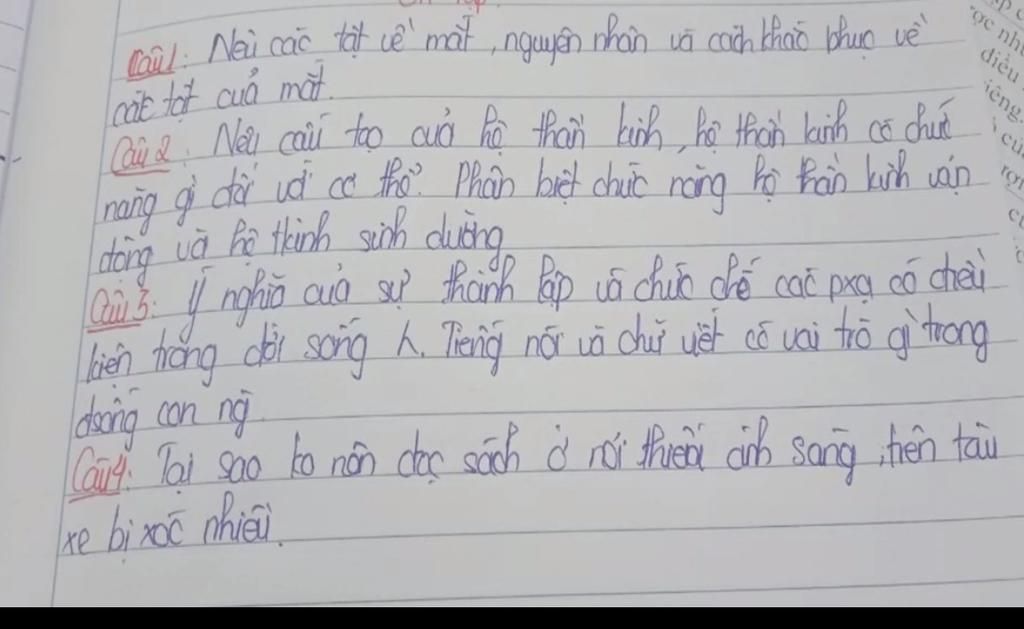 Câu 1: Nêu các tật về mắt, nguyên nhân và cách khắc phục về
các tật của mắt.
Câu 2: Nêu cấu tạo của hệ thần kinh, hệ thần kinh có chức
năng gì đối với cơ thể? Phân biệt chức năng hệ thần kinh vận
động và hệ tkinh sinh dưỡng
Câu 3: Ý nghĩa của sự thành lập và chức chế các pxạ có điều
kiện trong đời sống h. Tiếng nói và chữ viết có vai trò gì trong
đsống con ng
Câu 4: Tại sao ko nên đọc sách ở nơi thiếu ánh sáng, trên tàu
xe bị xóc nhiều.
điều
iêng